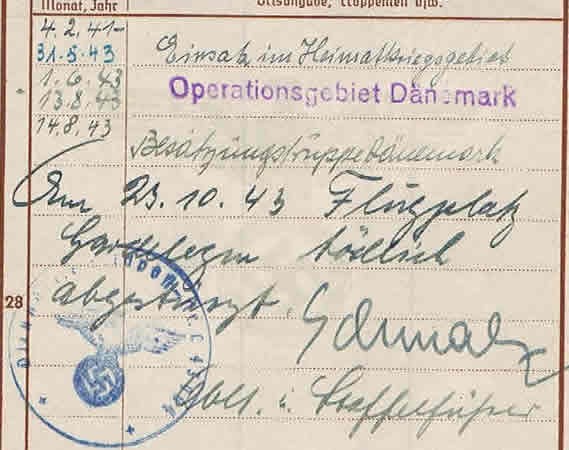 Monat, Jahr
Ortsangabe, Truppenteil usw.
4.2.41-
31.5.43 Einsatz im Heimatkriegsgebiet
1.6.43
13.8.43 Operationsgebiet Dänemark
14.8.43
Besatzungstruppe Dänemark
Am 23.10.43 Flugplatz
Gardelegen tödlich
abgestürzt. Schmalz
28
Oblt. u. Staffelführer